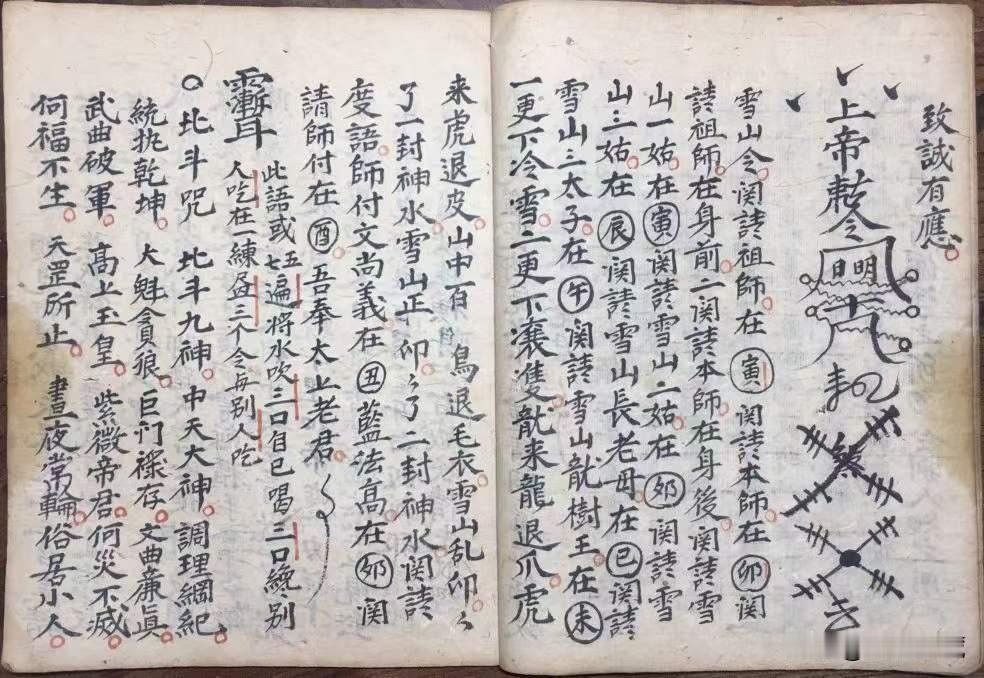 致誠有應。
上帝敕令
日明
雪山令。関請祖師。在寅関請本師。在卯関
請祖師。在身前二関請本師。在身後。関請雪
山一姑。在寅関請雪山二姑。在卯関請雪
山三姑。在辰関請雪山長老母。在巳関請
雪山三太子。在午関請雪山龍樹王。在未
一更下冷雪二更下濃雙龍来龍退爪虎
来虎退皮。山中百鳥退毛衣。雪山乱卯々
了一封神水。雪山正卯々了二封神水。関請
度語師付文尚義。在丑藍法高。在卯関
請師付在酉。吾奉太上老君。
此語或五七遍將水吹三口自己喝三口纔別
人吃在一練盆三个令再别人吃
○北斗咒 北斗九神。中天大神。調理綱紀。
統执乾坤。大魁貪狼。巨门祿存。文曲廉眞。
武曲破軍。高上玉皇。紫微帝君。何災不滅。
何福不生。天罡所止。晝夜常輪。俗居小人。